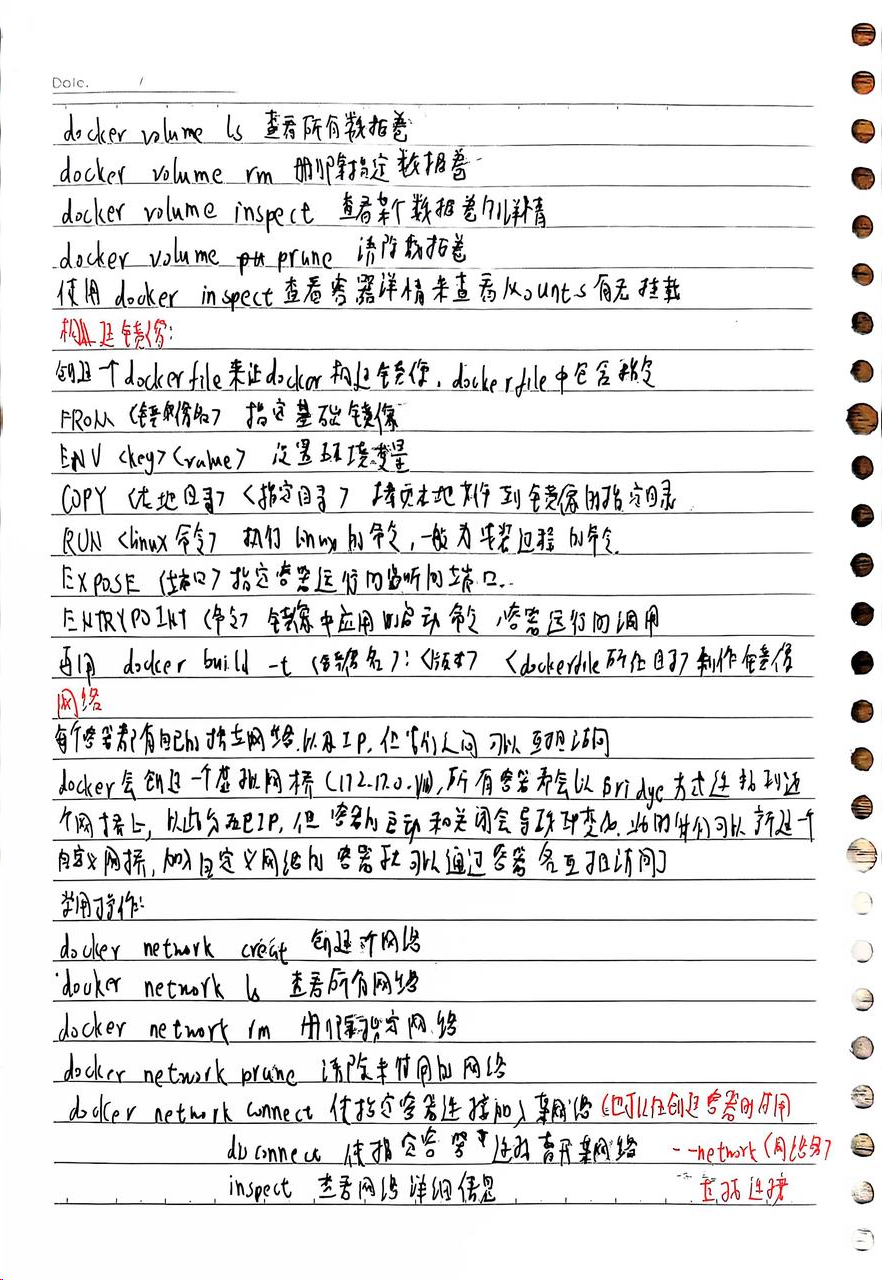 Date. /
docker volume ls 查看所有数据卷
docker volume rm 删除指定数据卷
docker volume inspect 查看某个数据卷的详情
docker volume prune 清除数据卷
使用 docker inspect 查看容器详情来查看Mounts有无挂载
构建镜像:
创建一个dockerfile来让docker构建镜像, dockerfile中包含指令
FROM <镜像名> 指定基础镜像
ENV <key><value> 设置环境变量
COPY <本地目录> <指定目录> 拷贝本地文件到镜像的指定目录
RUN <linux命令> 执行linux的命令,一般为安装过程的命令
EXPOSE <端口> 指定容器运行时监听的端口..
ENTRYPOINT <命令> 镜像中应用的启动命令,容器运行时调用
再用 docker build -t <镜像名>:<版本> <dockerfile所在目录> 制作镜像
网络
每个容器都有自己的独立网络以及IP,但它们之间可以互相访问
docker会创建一个虚拟网桥(172.17.0.1/16),所有容器都会以Bridge方式连接到这
个网桥上,以此分配IP,但容器的启动和关闭会导致IP变化,此时我们可以新建一个
自定义网桥,加入自定义网络的容器就可以通过容器名互相访问了
常用操作:
docker network creat 创建新网络
docker network ls 查看所有网络
docker network rm 删除指定网络
docker network prune 清除未使用的网络
docker network connect 使指定容器连接加入某网络 (也可以在创建容器时使用
disconnect 使指定容器 离开某网络 --network (网络名)
inspect 查看网络详细信息 直接连接